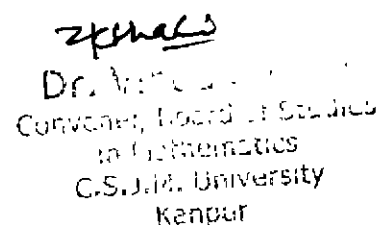 Dr.
Convener, Board of Studies
in Mathematics
C.S.J.M. University
Kanpur